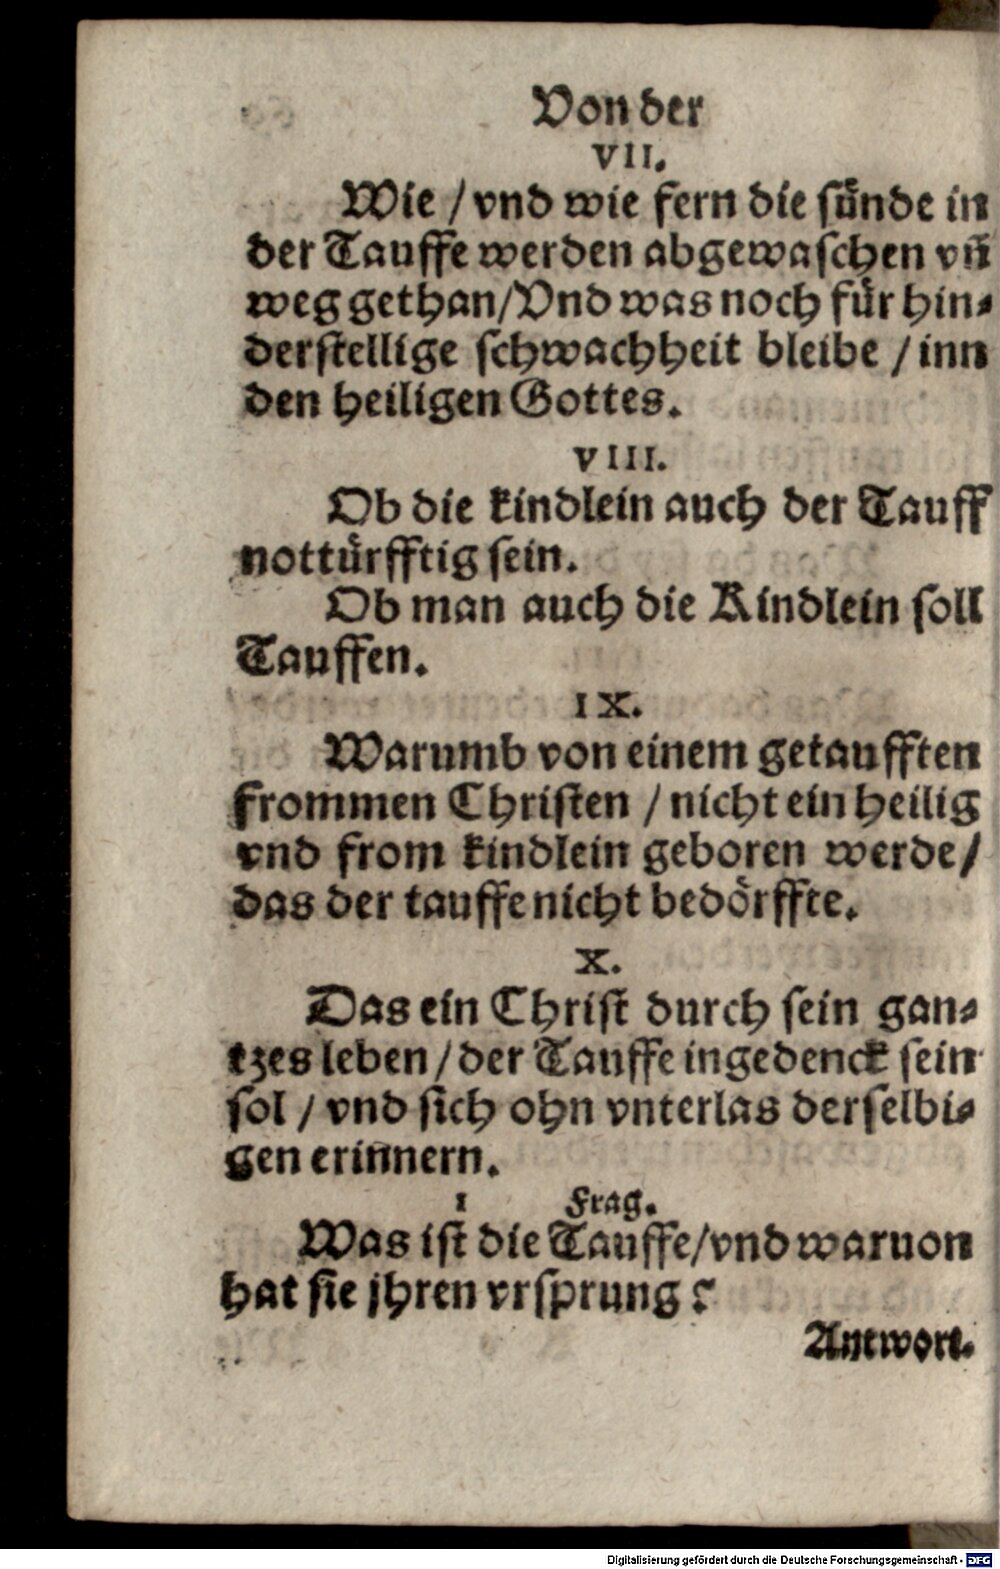 Von der
VII.
Wie / vnd wie fern die sünde in
der Tauffe werden abgewaschen vn̄
weg gethan/Vnd was noch für hin⸗
derstellige schwachheit bleibe / inn
den heiligen Gottes.
VIII.
Ob die kindlein auch der Tauff
nottürfftig sein.
Ob man auch die Kindlein soll
Tauffen.
IX.
Warumb von einem getaufften
frommen Christen / nicht ein heilig
vnd from kindlein geboren werde/
das der tauffe nicht bedörffte.
X.
Das ein Christ durch sein gan⸗
tzes leben / der Tauffe ingedenck sein
sol / vnd sich ohn vnterlas derselbi⸗
gen erinnern.
1 Frag.
Was ist die Tauffe/vnd waruon
hat sie jhren vrsprung?
Antwort.
Digitalisierung gefördert durch die Deutsche Forschungsgemeinschaft - DFG